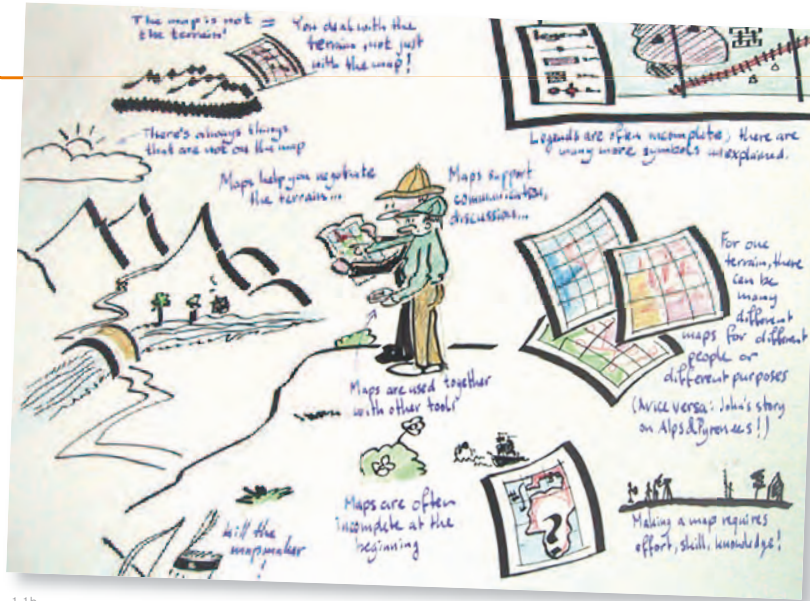 The map is not
the terrain!
=
You deal with the
terrain, not just
with the map!
There's always things
that are not on the map
Legends are often incomplete; there are
many more symbols unexplained.
Maps help you negotiate
the terrain...
Maps support
communication,
discussion...
For one
terrain, there
can be
many
different
maps for different
people or
different purposes
(Avice versa: John's story
on Alps&Pyrenees!)
Maps are used together
with other tools
Maps are often
incomplete at the
beginning
?
Making a map requires
effort, skill, knowledge!
kill the
mapmaker
!